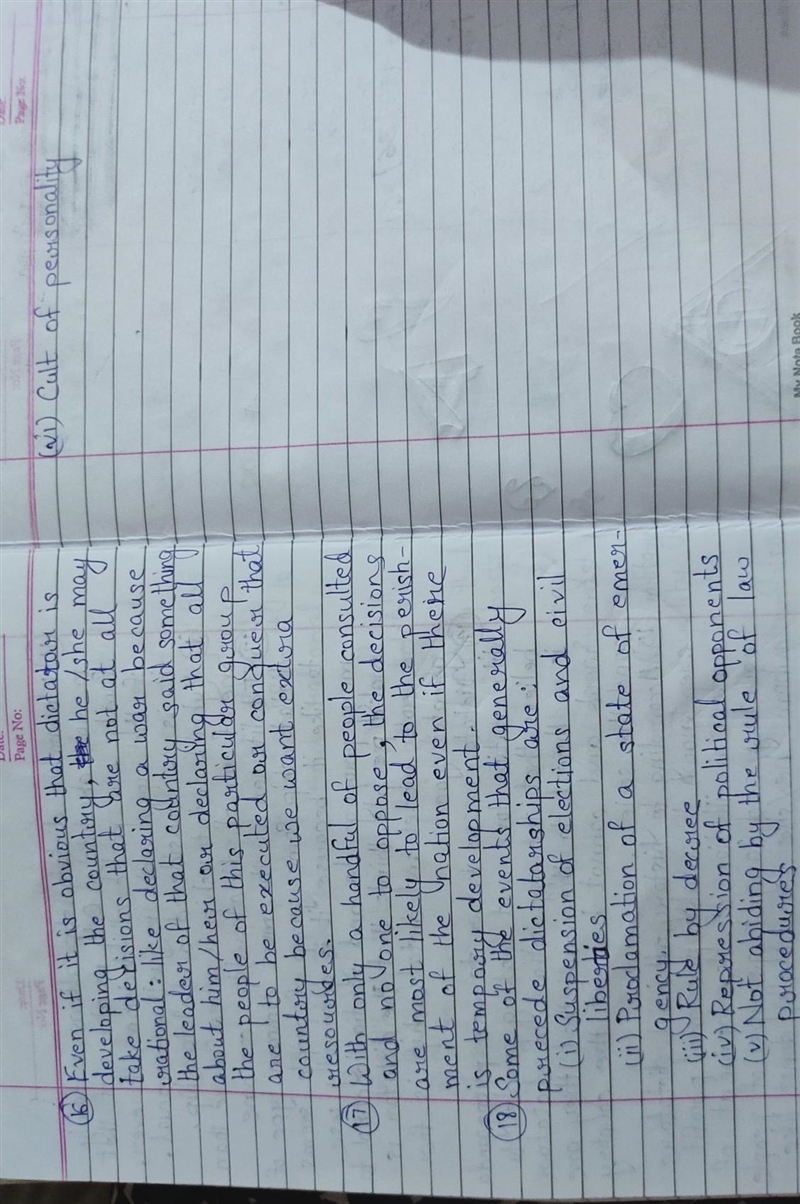 Page No:
(16) Even if it is obvious that dictator is
developing the country, he/she may
take decisions that are not at all
rational: like declaring a war because
the leader of that country said something
about him/her or declaring that all
the people of this particular group
are to be executed or conquer that
country because we want extra
resources.
(17) With only a handful of people consulted
and no one to oppose, the decisions
are most likely to lead to the perish-
ment of the nation even if there
is tempary development.
(18) Some of the events that generally
precede dictatorships are:
(i) Suspension of elections and civil
liberties
(ii) Proclamation of a state of emer-
gency.
(iii) Rule by decree
(iv) Repression of political opponents
(v) Not abiding by the rule of law
procedures
Page No:
(vi) Cult of personality
My Note Book